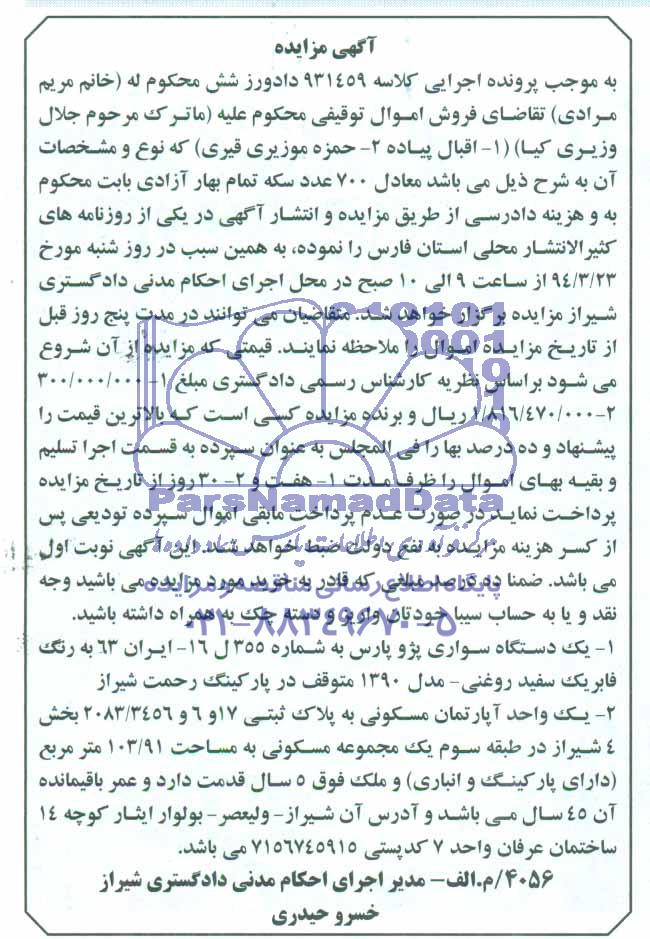 آگهی مزایده
به موجب پرونده اجرایی کلاسه ۹۳۱٤٥۹ دادورز شش محکوم له (خانم مریم
مرادی) تقاضای فروش اموال توقیفی محکوم علیه (ماترک مرحوم جلال
وزیری کیا) (۱- اقبال پیاده ۲- حمزه موزیری قیری) که نوع و مشخصات
آن به شرح ذیل می باشد معادل ۷۰۰ عدد سکه تمام بهار آزادی بابت محکوم
به و هزینه دادرسی از طریق مزایده و انتشار آگهی در یکی از روزنامه های
کثیرالانتشار محلی استان فارس را نموده، به همین سبب در روز شنبه مورخ
۹٤/۳/۲۳ از ساعت ۹ الی ۱۰ صبح در محل اجرای احکام مدنی دادگستری
شیراز مزایده برگزار خواهد شد. متقاضیان می توانند در مدت پنج روز قبل
از تاریخ مزایده اموال را ملاحظه نمایند. قیمتی که مزایده از آن شروع
می شود براساس نظریه کارشناس رسمی دادگستری مبلغ ۱- ۳۰۰/۰۰۰/۰۰۰
۲- ۱/۸۱٦/٤۷۰/۰۰۰ ریال و برنده مزایده کسی است که بالاترین قیمت را
پیشنهاد و ده درصد بها را فی المجلس به عنوان سپرده به قسمت اجرا تسلیم
و بقیه بهای اموال را ظرف مدت ۱- هفت و ۲- ۳۰ روز از تاریخ مزایده
پرداخت نماید در صورت عدم پرداخت مابقی اموال سپرده تودیعی پس
از کسر هزینه مزایده به نفع دولت ضبط خواهد شد. این آگهی نوبت اول
می باشد. ضمنا ده درصد مبلغی که قادر به خرید مورد مزایده می باشید وجه
نقد و یا به حساب سیبا خودتان واریز و دسته چک به همراه داشته باشید.
۱- یک دستگاه سواری پژو پارس به شماره ۳٥٥ ل ۱٦- ایران ٦۳ به رنگ
فابریک سفید روغنی- مدل ۱۳۹۰ متوقف در پارکینگ رحمت شیراز
۲- یک واحد آپارتمان مسکونی به پلاک ثبتی ۱۷و ٦ و ۲۰۸۳/۳٤٥٦ بخش
٤ شیراز در طبقه سوم یک مجموعه مسکونی به مساحت ۱۰۳/۹۱ متر مربع
(دارای پارکینگ و انباری) و ملک فوق ٥ سال قدمت دارد و عمر باقیمانده
آن ٤٥ سال می باشد و آدرس آن شیراز- ولیعصر- بولوار ایثار کوچه ۱٤
ساختمان عرفان واحد ۷ کدپستی ۷۱٥٦۷٤٥۹۱٥ می باشد.
٤۰٥٦/م.الف- مدیر اجرای احکام مدنی دادگستری شیراز
خسرو حیدری
ParsNamadData
پایگاه اطلاع رسانی مناقصه و مزایده
۰۲۱-۸۸۳٤۹٦۷۰-٥